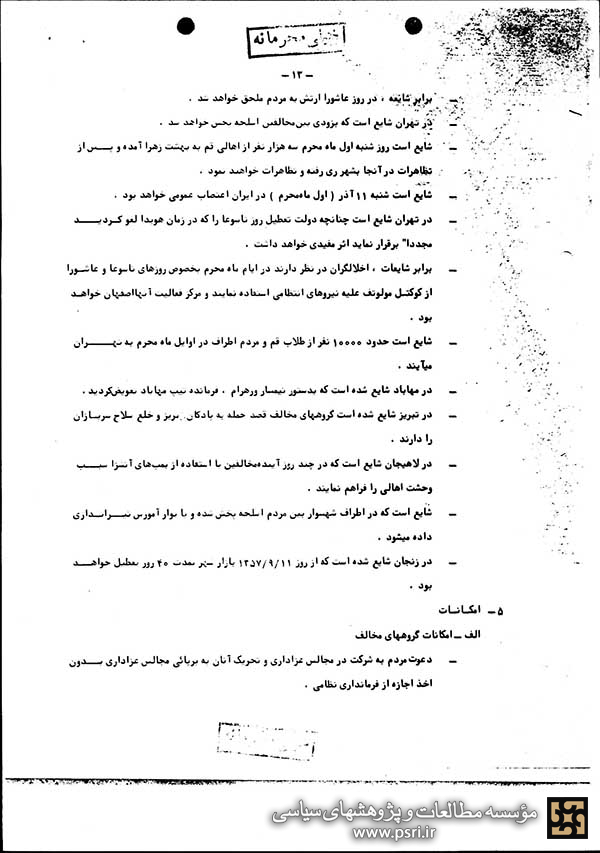 خیلی محرمانه
- ۱۳ -
ـ برابر شایعه ، در روز عاشورا ارتش به مردم ملحق خواهد شد .
ـ در تهران شایع است که بزودی بین مخالفین اسلحه پخش خواهد شد .
ـ شایع است روز شنبه اول ماه محرم سه هزار نفر از اهالی قم به بهشت زهرا آمده و پس از
تظاهرات در آنجا بشهر ری رفته و تظاهرات خواهند نمود .
ـ شایع است شنبه ۱۱ آذر ( اول ماه محرم ) در ایران اعتصاب عمومی خواهد بود .
ـ در تهران شایع است چنانچه دولت تعطیل روز تاسوعا را که در زمان هویدا لغو کردید
مجددا" برقرار نماید اثر مفیدی خواهد داشت .
ـ برابر شایعات ، اخلالگران در نظر دارند در ایام ماه محرم بخصوص روزهای تاسوعا و عاشورا
از کوکتل مولوتف علیه نیروهای انتظامی استفاده نمایند و مرکز فعالیت آنها اصفهان خواهد
بود .
ـ شایع است حدود ۱۰۰۰۰ نفر از طلاب قم و مردم اطراف در اوایل ماه محرم به تهران
میآیند .
ـ در مهاباد شایع شده است که بدستور تیمسار ورهرام ، فرمانده تیپ مهاباد تعویض گردید .
ـ در تبریز شایع شده است گروههای مخالف قصد حمله به پادگان تبریز و خلع سلاح سربازان
را دارند .
ـ در لاهیجان شایع است که در چند روز آینده مخالفین با استفاده از بمب‌های آتش‌زا سبب
وحشت اهالی را فراهم نمایند .
ـ شایع است که در اطراف شهسوار بین مردم اسلحه پخش شده و با نوار آموزش تیراندازی
داده میشود .
ـ در زنجان شایع شده است که از روز ۱۳۵۷/۹/۱۱ بازار شهر بمدت ۴۰ روز تعطیل خواهد
بود .
۵ ـ امکانات
الف ـ امکانات گروههای مخالف
ـ دعوت مردم به شرکت در مجالس عزاداری و تحریک آنان به برپائی مجالس عزاداری بدون
اخذ اجازه از فرمانداری نظامی .
مؤسسه مطالعات و پژوهشهای سیاسی
www.psri.ir